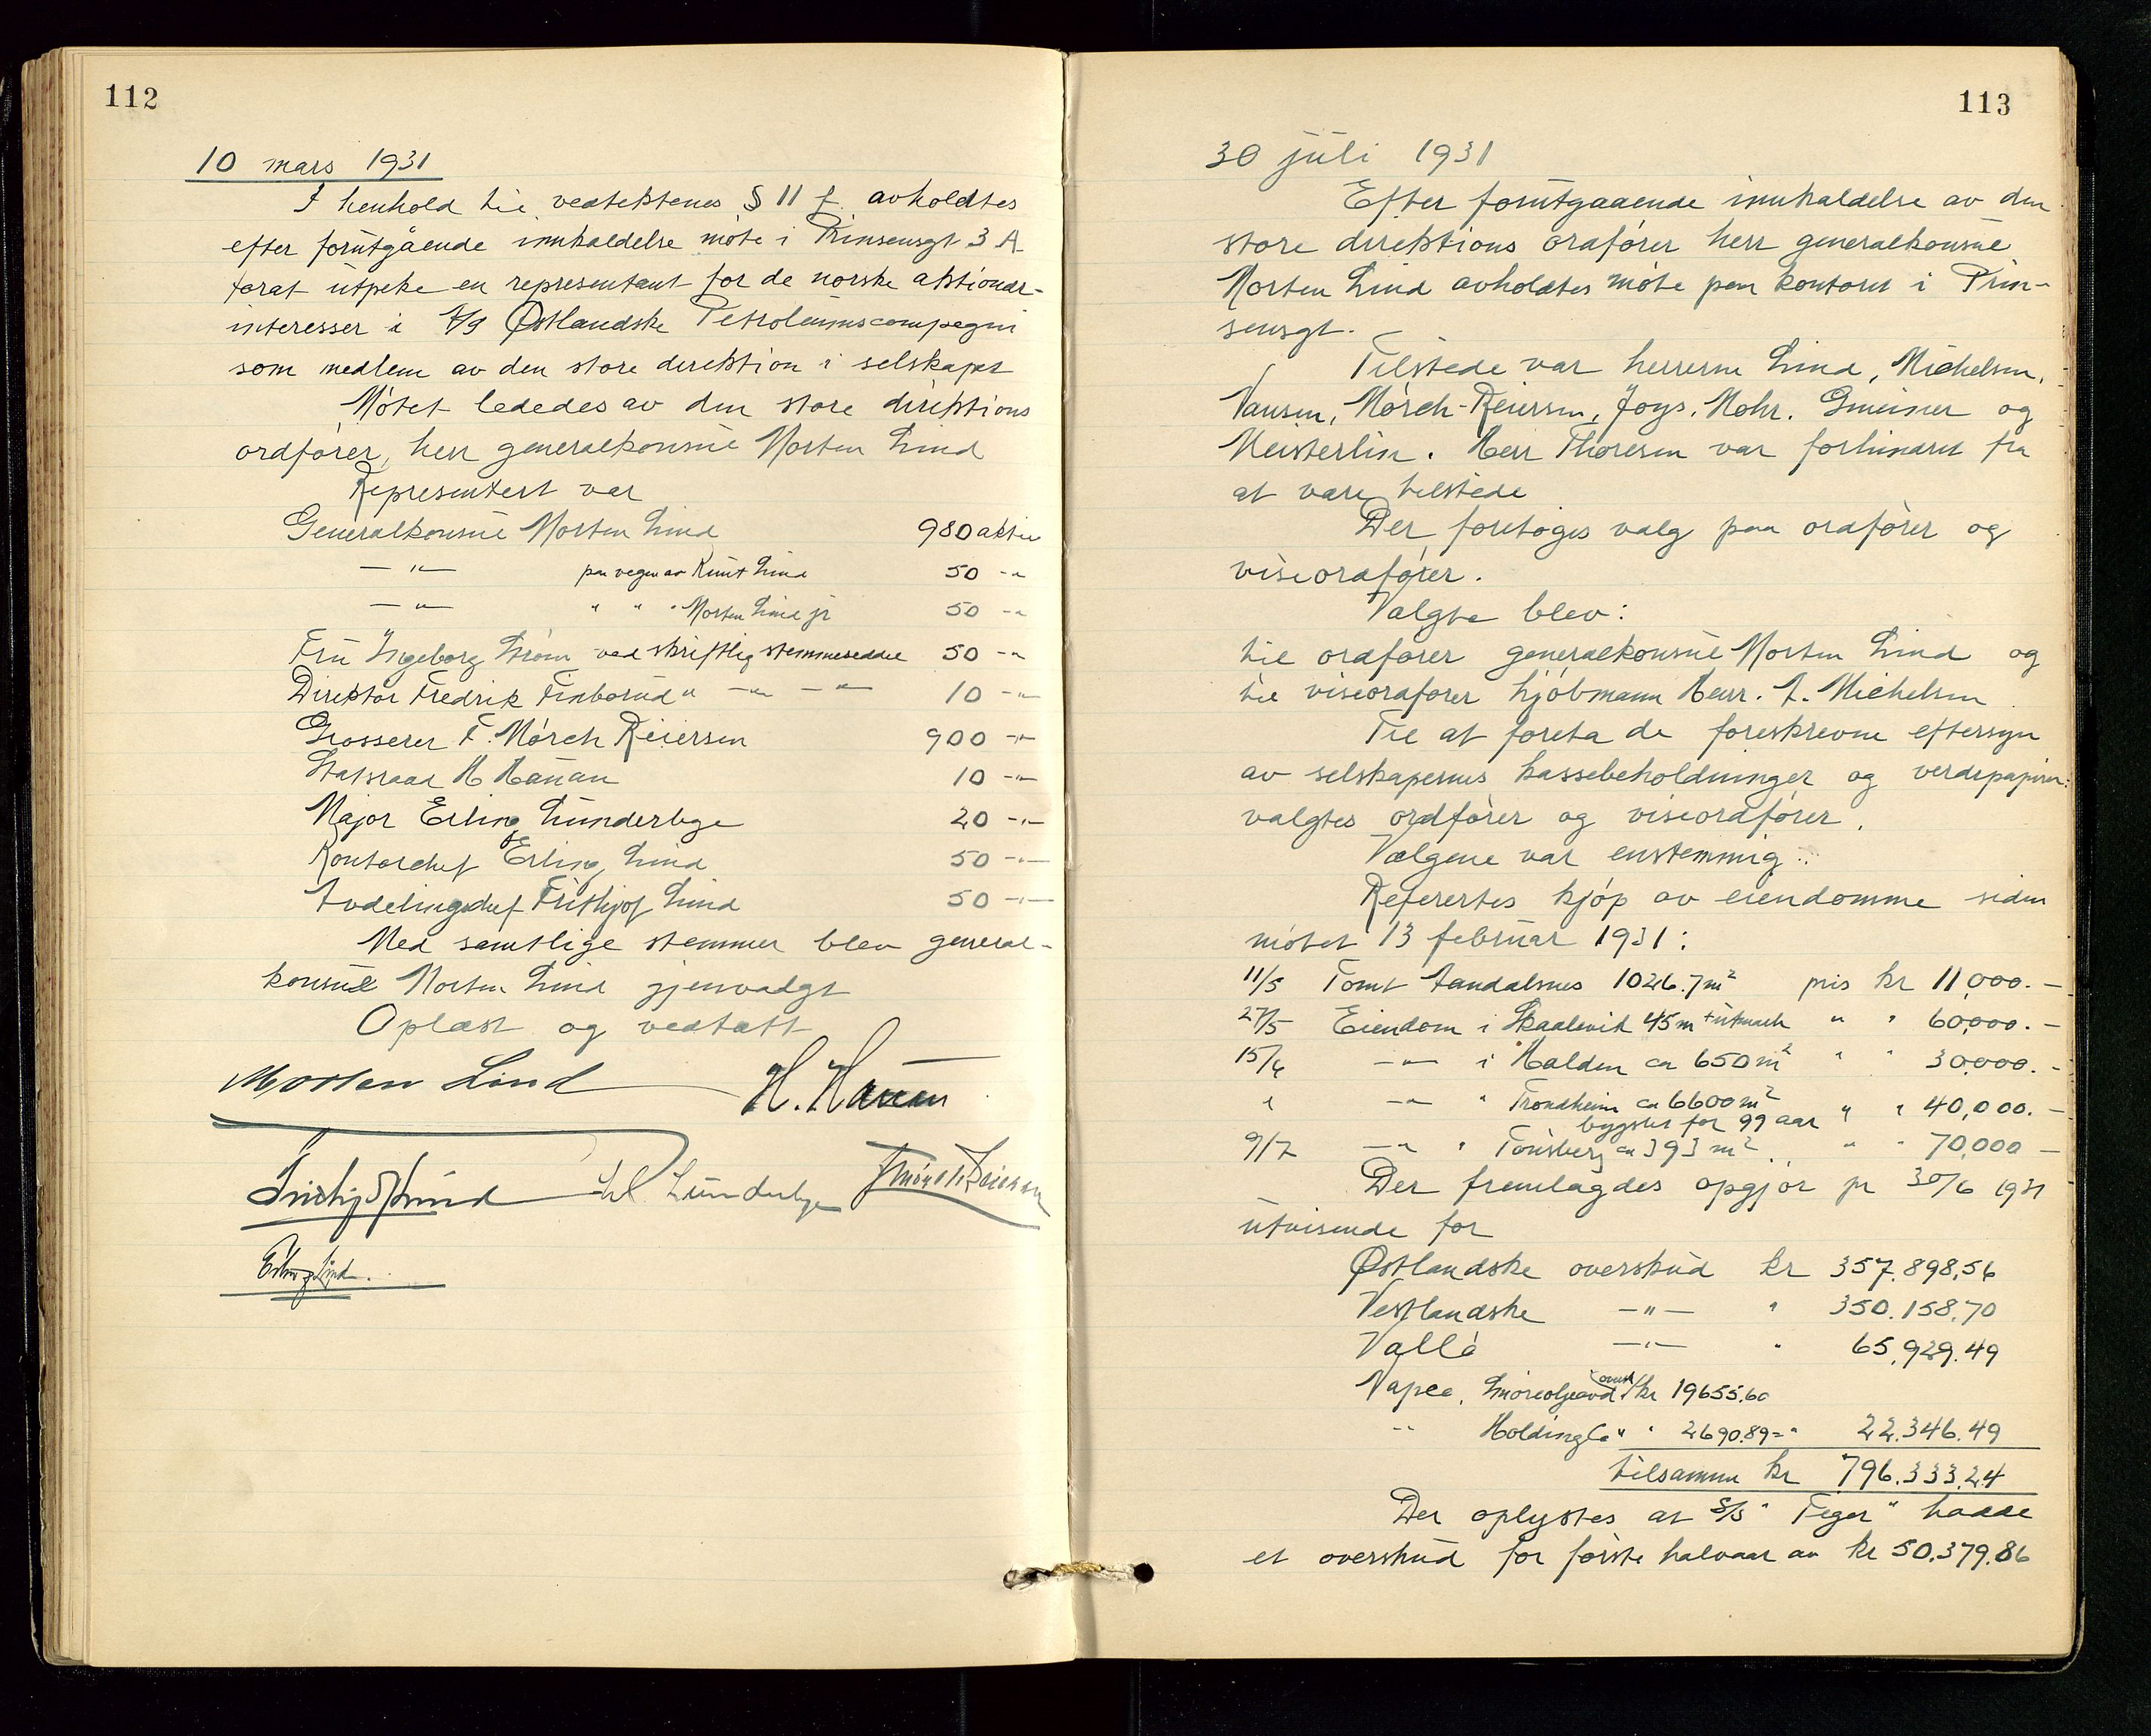 112
10 mars 1931
I henhold til vedtektenes § 11 f. avholdtes
efter forutgående innkaldelse møte i Prinsensgt 3 A
forat utpeke en representant for de norske aktionær-
interesser i A/S Østlandske Petroleumscompagni
som medlem av den store direktion i selskapet
Møtet lededes av den store direktions
ordfører, herr generalkonsul Morten Lind
Representert var
Generalkonsul Morten Lind 980 aktie
—"— paa vegne av Knut Lind 50 -"
—"— " " " Morten Lind jr 50 -"
Fru Ingeborg Strøm ved skriftlig stemmeseddel 50 -"
Direktør Fredrik Finborud " —"— —"— 10 -"-
Grosserer F. Mørch Reiersen 900 -"-
Statsraad H Hauan 10 -"-
Major Erling Lunderbye 20 -"-
Kontorchef Erling Lind 50 -"-
Avdelingschef Frithjof Lind 50 -"-
Med samtlige stemmer blev general-
konsul Morten Lind gjenvalgt
Oplæst og vedtatt
Morten Lind H. Hauan
Frithjof Lind Lunderbye F Mørch Reiersen
Erling Lind.
113
30 juli 1931
Efter forutgaaende innkaldelse av den
store direktions ordfører herr generalkonsul
Morten Lind avholdtes møte paa kontoret i Prin-
sensgt.
Tilstede var herrerne Lind, Michelsen,
Nansen, Mørch-Reiersen, Joys, Mohr, Gmeiner og
Meisterlin. Herr Thoresen var forhindret fra
at være tilstede
Der foretoges valg paa ordfører og
viseordfører.
Valgte blev:
til ordfører generalkonsul Morten Lind og
til viseordfører kjøbmann Herr. A. Michelsen
Til at foreta de foreskrevne eftersyn
av selskapernes kassebeholdninger og verdipapirer
valgtes ordfører og viseordfører.
Valgene var enstemmig.
Referertes kjøp av eiendomme siden
møtet 13 februar 1931:
11/5 Tomt Aandalsnes 1026.7 m² pris kr 11,000.—
27/5 Eiendom i Skaalevik 45 m + utmark " " 60,000.—
15/6 —"— i Halden ca 650 m² " " 30,000.—
" —"— " Trondheim ca 6600 m²
bygslet for 99 aar " " 40,000.—
9/7 —"— " Tønsberg ca 393 m² " " 70,000 —
Der fremlagdes opgjør pr 30/6 1931
utvisende for
Østlandske overskud kr 357.898,56
Vestlandske —"— " 350.158.70
Vallø —"— " 65.929.49
Napea, Smøreoljeavd. oversk kr 19655.60
" Holding Co " " 2690.89 = " 22.346.49
tilsammen kr 796.333.24
Der oplystes at S/S "Tiger" hadde
et overskud for første halvaar av kr 50.379.86